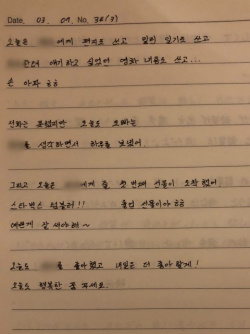 Date. 03. 01. No. 36(3)
오늘은 에게 편지도 쓰고 밀린 일기도 쓰고
한테 얘기하고 싶었던 영화 내용도 쓰고...
손 아파 ㅎㅎ
전화는 못했지만 오늘도 오빠는
를 생각하면서 하루를 보냈어
그리고 오늘은 에게 줄 첫 번째 선물이 도착했어
스타벅스 텀블러!! 출입 선물이야 ㅎㅎ
예쁘게 잘 써야해~
오늘도 를 좋아했고 내일은 더 좋아할게!
오늘도 행복한 꿈 꾸세요.